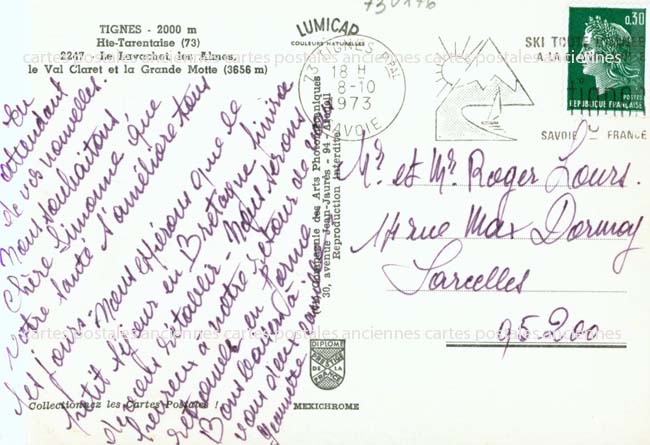 730176
TIGNES - 2000 m
Hte-Tarentaise (73)
2247 - Le Lavachet, les Almes,
le Val Claret et la Grande Motte (3656 m)
LUMICAP
COULEURS NATURELLES
73 TIGNES PPAL
18 H
8-10
1973
SAVOIE
SKI TOUTE
A LA
SAVOIE FRANCE
0,30
POSTES
REPUBLIQUE FRANCAISE
En
attendant
de vos nouvelles.
Nous souhaitons
Chère Simonne que
votre santé s'améliore tous
les jours - Nous espérons que le
petit séjour en Bretagne finira
de vous rétablir - Nous serons
heureux à notre retour de
retrouver en forme
Bons baisers à
vous deux
Mr et Mr Roger Lours.
14 rue Max Dormoy
Sarcelles
95.200
Compagnie des Arts Photomécaniques
30, avenue Jean-Jaurès - 94 - Arcueil
Reproduction interdite
DIPLOME
PRESTIGE
DE LA
FRANCE
Collectionnez les Cartes Postales !
MEXICHROME
cartes postales anciennes cartes postales anciennes cartes postales anciennes
cartes postales anciennes cartes postales anciennes cartes postales anciennes